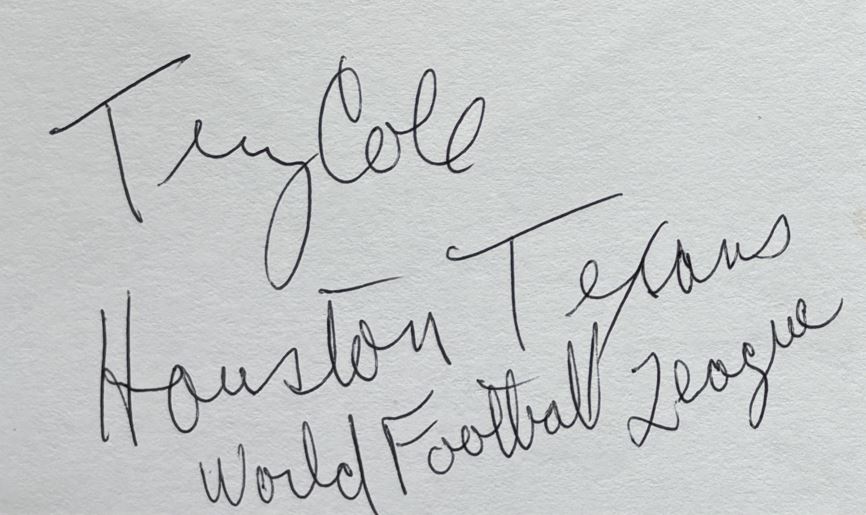 Terry Cole
Houston Texans
World Football League